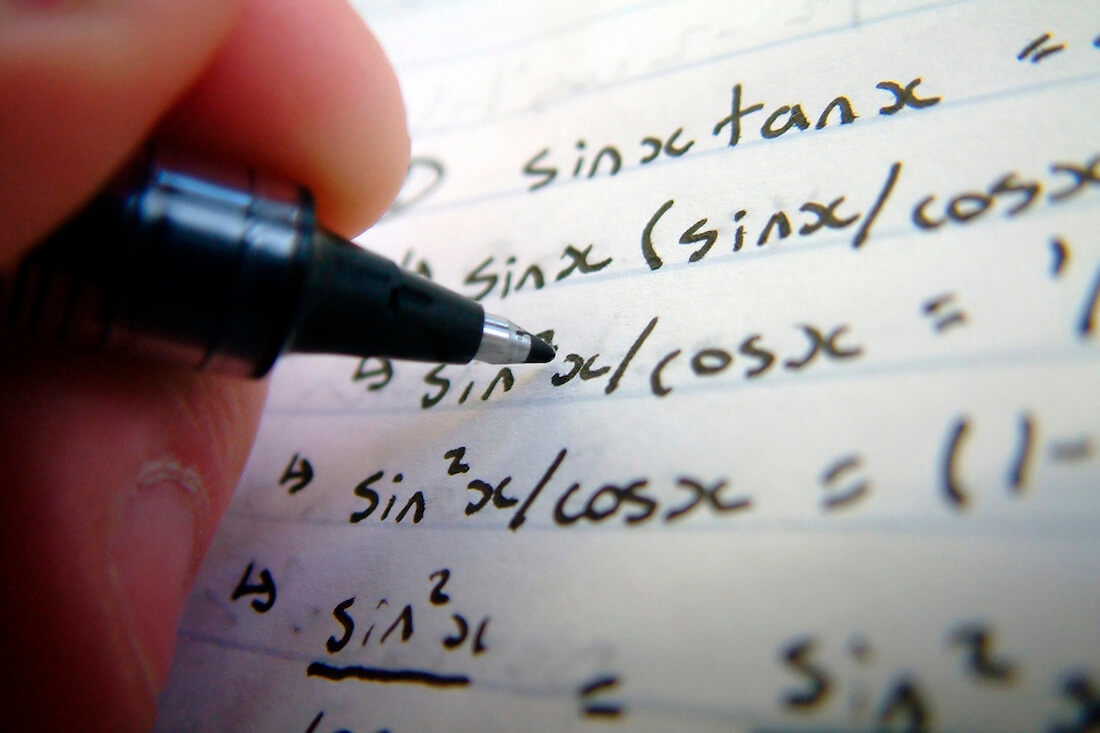 sinx tanx =
sinx (sinx/cosx
↳ sin²x/cosx = 1/
↳ sin²x/cosx = (1-
↳ sin²x = sin²x